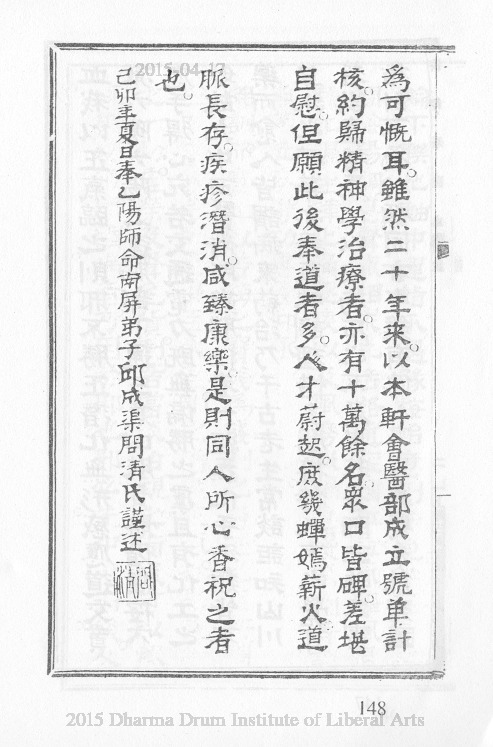 為可慨耳。雖然二十年來。以本軒會醫部成立號單計
核。約歸精神學治療者。亦有十萬餘名。眾口皆碑。差堪
自慰。但願此後奉道者多。人才蔚起。庶幾蟬嫣薪火道
脈長存。疾疹潛消。咸臻康樂。是則同人所心香祝之者
也。
己卯年夏日奉乙陽師命南屏弟子邱成渠問清氏謹述
問清
148
2015-04-17
2015 Dharma Drum Institute of Liberal Arts